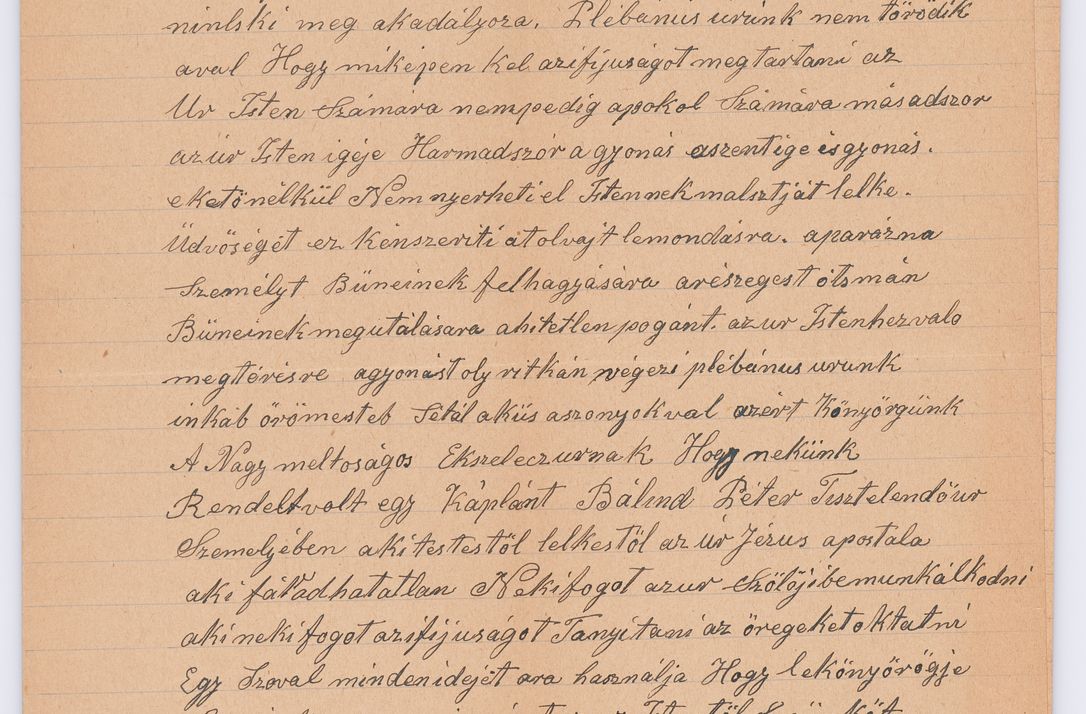 ninlski meg akadályoza. Plébánus urunk nem törödik
aval Hogy miképen kel azifijuságot megtartani az
Ur Isten Számára nempedig apokol Számára másadszor
azúr Isten igéje Harmadszór a gyonás aszentige ésgyonás.
eketönélkül Nem nyerheti el Istennek malsztját lelke.
Üdvöségét ez kénszeriti atolvajt lemondásra. aparázna
Személyt Büneinek felhagyására arészegest ótsmán
Büneinek megutálásara ahitetlen pogánt. azur Istenhez valo
megtérésre agyonást oly ritkán végezi plébánus urunk
inkáb örömesteb Sétál aküs aszonyokval azért Könyörgünk
A Nagy meltoságos Ekszeleczurnak Hogy nekünk
Rendelt volt egy Káplánt Bálind Péter Tisztelendöur
Szemeljében aki testestöl lelkestöl az úr Jézus apostala
aki fáradhatatlan Nekifogot azur Szölöjibe munkálkodni
aki neki fogot azifijuságot Tanyitani az öregeket oktatni
Egy Szoval mindenidejét ara hasznalja Hogy lekönyörögje